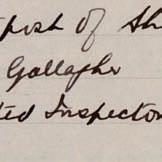 of Sh
Gallagher
ted Inspector